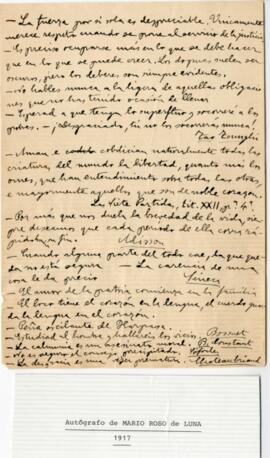 — La fuerza por si sola es despreciable. Unicamente
merece respeto cuando se pone al servicio de la justicia
— Es preciso ocuparse más en lo que se debe hacer
que en lo que se puede creer. Los dogmas suelen ser
oscuros, pero los deberes son siempre evidentes.
— No hables nunca a la ligera de aquellas obligacio
nes que no has tenido ocasión de llenar
— Esperad a que tengo lo superfluo y socorreré a los
pobres. — ¡Desgraciado, tú no los socorrerás nunca!
— Aman e cobdician naturalmente todas las
criaturas del mundo la libertad, quanto más los
omes, que han entendimiento sobre todas las otras,
e mayormente aquellos que son de noble coraçon.
La Siete Partida, tit. XXII
— Por más que nos duela la brevedad de la vida, siem
pre deseamos que cada periodo de ella corra rá
pido a su fin. Adisson
— Cuando alguna parte del todo cae, la que que
da no está segura — La carencia de una
cosa le da precio Séneca
— El amor de la patria comienza en la familia
— El loco tiene el corazón en la lengua, el cuerdo
la lengua en el corazón.
— Peña oscilante de
— Estudiad al hombre y hallaréis los vicios. Bossuet
— La calumnia es un asesinato moral. B. Constant
— No es seguro el consejo precipitado.
— La desgracia es una vejez prematura. Chateaubriand
Autógrafo de MARIO ROSO de LUNA
1917